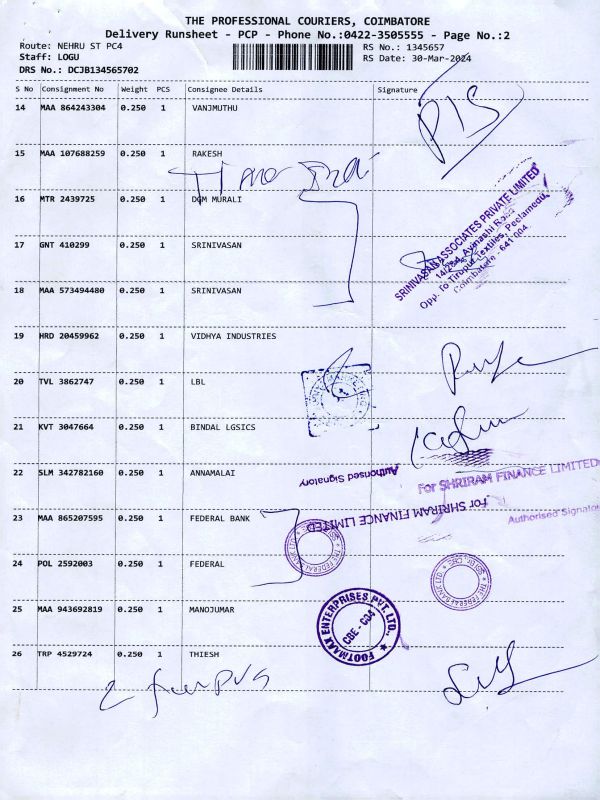 THE PROFESSIONAL COURIERS, COIMBATORE
Delivery Runsheet - PCP - Phone No.:0422-3505555 - Page No.:2
Route: NEHRU ST PC4 RS No.: 1345657
Staff: LOGU RS Date: 30-Mar-2024
DRS No.: DCJB134565702
S No Consignment No Weight PCS Consignee Details Signature
14 MAA 864243304 0.250 1 VANJMUTHU
15 MAA 107688259 0.250 1 RAKESH
16 MTR 2439725 0.250 1 DGM MURALI
SRINIVASAN ASSOCIATES PRIVATE LIMITED
14/254, Avinashi Road
Opp. To Tirupur Textiles, Peelamedu,
Coimbatore - 641 004
17 GNT 410299 0.250 1 SRINIVASAN
18 MAA 573494480 0.250 1 SRINIVASAN
19 HRD 20459962 0.250 1 VIDHYA INDUSTRIES
20 TVL 3862747 0.250 1 LBL
21 KVT 3047664 0.250 1 BINDAL LGSICS
22 SLM 342782160 0.250 1 ANNAMALAI
Authorised Signatory
For SHRIRAM FINANCE LIMITED
For SHRIRAM FINANCE LIMITED
Authorised Signatory
23 MAA 865207595 0.250 1 FEDERAL BANK
THE FEDERAL BANK LTD.
24 POL 2592003 0.250 1 FEDERAL
THE FEDERAL BANK LTD.
25 MAA 943692819 0.250 1 MANOJUMAR
FOOTMAXX ENTERPRISES PVT. LTD.,
CBE - C34
26 TRP 4529724 0.250 1 THIESH